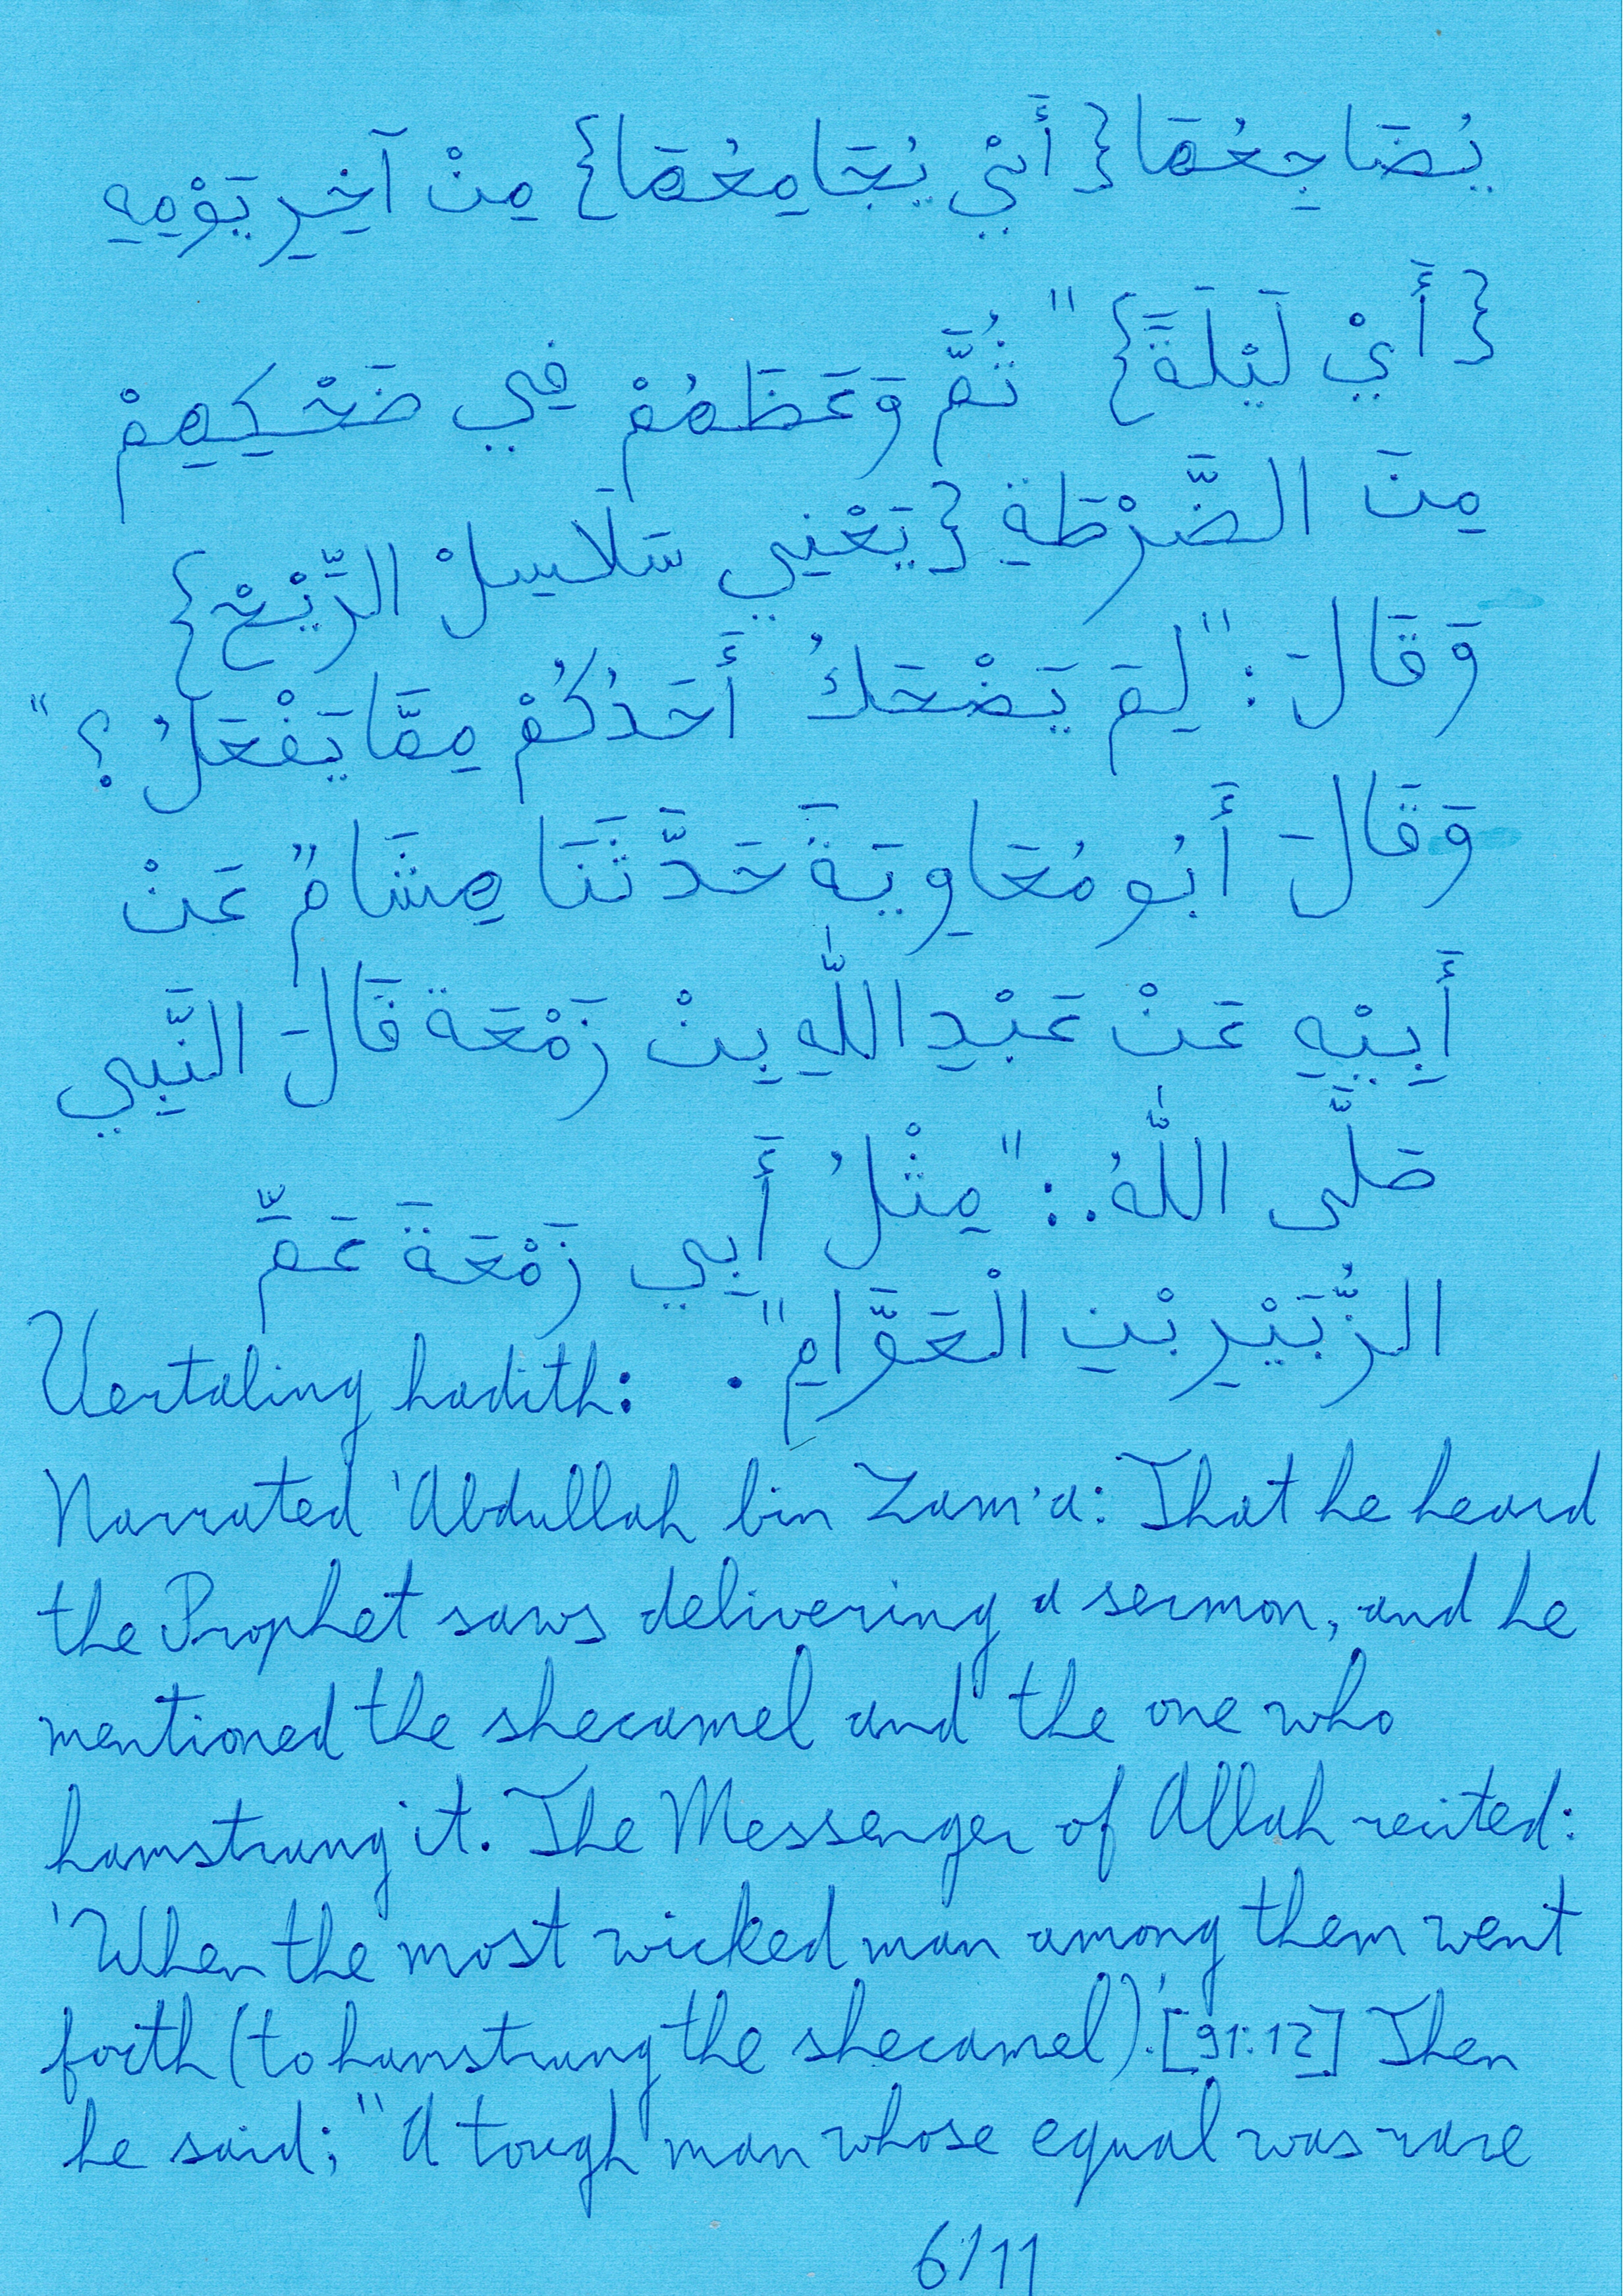 يُضَاجِعُهَا {أَيْ يُجَامِعُهَا} مِنْ آخِرِ يَوْمِهِ
{أَيْ لَيْلَةً}" ثُمَّ وَعَظَهُمْ فِي ضَحْكِهِمْ
مِنَ الضَّرْطَةِ {يَعْنِي سَلَاسِلْ الرِّيْحْ}
وَقَالَ: "لِمَ يَضْحَكُ أَحَدُكُمْ مِمَّا يَفْعَلُ؟"
وَقَالَ أَبُو مُعَاوِيَةَ حَدَّثَنَا هِشَامٌ عَنْ
أَبِيْهِ عَنْ عَبْدِ اللّٰهِ بِنْ زَمْعَة قَالَ النَّبِي
صَلَّى اللّٰهُ.: "مِثْلُ أَبِي زَمْعَةَ عَمِّ
الزُّبَيْرِ بْنِ الْعَوَّامِ".
Vertaling hadith:
Narrated 'Abdullah bin Zam'a: That he heard
the Prophet saws delivering a sermon, and he
mentioned the shecamel and the one who
hamstrung it. The Messenger of Allah recited:
'When the most wicked man among them went
forth (to hamstrung the shecamel).'[91:12] Then
he said; "A tough man whose equal was rare
6/11